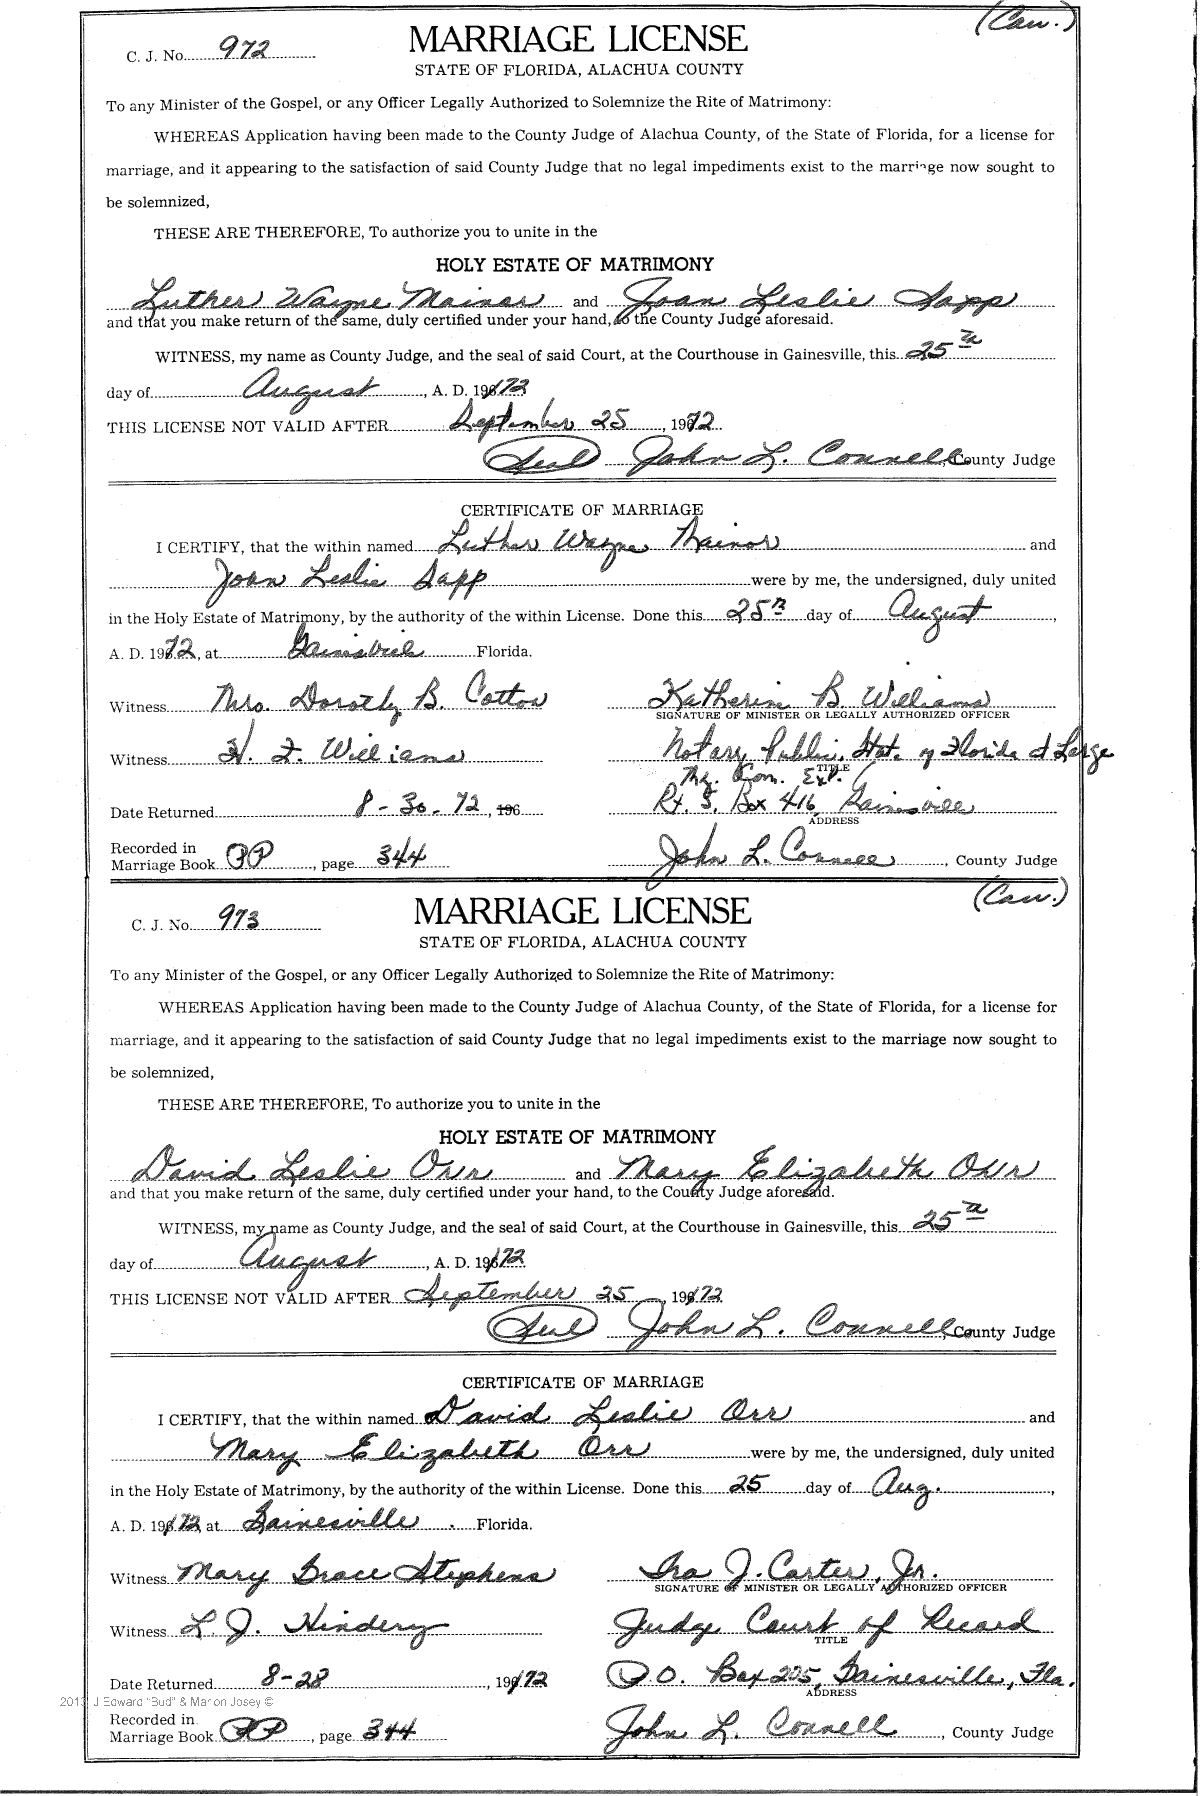 (Cau.)
C. J. No. 972
MARRIAGE LICENSE
STATE OF FLORIDA, ALACHUA COUNTY
To any Minister of the Gospel, or any Officer Legally Authorized to Solemnize the Rite of Matrimony:
WHEREAS Application having been made to the County Judge of Alachua County, of the State of Florida, for a license for
marriage, and it appearing to the satisfaction of said County Judge that no legal impediments exist to the marriage now sought to
be solemnized,
THESE ARE THEREFORE, To authorize you to unite in the
HOLY ESTATE OF MATRIMONY
Luther Wayne Mainor and Joan Leslie Sapp
and that you make return of the same, duly certified under your hand, to the County Judge aforesaid.
WITNESS, my name as County Judge, and the seal of said Court, at the Courthouse in Gainesville, this 25th
day of August, A. D. 1972
THIS LICENSE NOT VALID AFTER September 25, 1972
(Seal) John L. Connell, County Judge
CERTIFICATE OF MARRIAGE
I CERTIFY, that the within named Luther Wayne Mainor and
Joan Leslie Sapp were by me, the undersigned, duly united
in the Holy Estate of Matrimony, by the authority of the within License. Done this 25th day of August,
A. D. 1972, at Gainesville Florida.
Witness Mrs. Dorothy B. Cotton Katherine B. Williams
SIGNATURE OF MINISTER OR LEGALLY AUTHORIZED OFFICER
Witness H. F. Williams Notary Public, State of Florida at Large
TITLE
My Com. Exp.
Date Returned 8-30-72, 196 Rt. 5, Box 416, Gainesville
ADDRESS
Recorded in
Marriage Book PP, page 344 John L. Connell, County Judge
(Cau.)
C. J. No. 973
MARRIAGE LICENSE
STATE OF FLORIDA, ALACHUA COUNTY
To any Minister of the Gospel, or any Officer Legally Authorized to Solemnize the Rite of Matrimony:
WHEREAS Application having been made to the County Judge of Alachua County, of the State of Florida, for a license for
marriage, and it appearing to the satisfaction of said County Judge that no legal impediments exist to the marriage now sought to
be solemnized,
THESE ARE THEREFORE, To authorize you to unite in the
HOLY ESTATE OF MATRIMONY
David Leslie Orr and Mary Elizabeth Orr
and that you make return of the same, duly certified under your hand, to the County Judge aforesaid.
WITNESS, my name as County Judge, and the seal of said Court, at the Courthouse in Gainesville, this 25th
day of August, A. D. 1972
THIS LICENSE NOT VALID AFTER September 25, 1972
(Seal) John L. Connell, County Judge
CERTIFICATE OF MARRIAGE
I CERTIFY, that the within named David Leslie Orr and
Mary Elizabeth Orr were by me, the undersigned, duly united
in the Holy Estate of Matrimony, by the authority of the within License. Done this 25 day of Aug.,
A. D. 1972, at Gainesville, Florida.
Witness Mary Grace Stephens Ira J. Carter, Jr.
SIGNATURE OF MINISTER OR LEGALLY AUTHORIZED OFFICER
Witness L. J. Hindery Judge Court of Record
TITLE
Date Returned 8-28, 1972 P.O. Box 205, Gainesville, Fla.
ADDRESS
2013 J Edward "Bud" & Marion Josey ©
Recorded in
Marriage Book PP, page 344 John L. Connell, County Judge